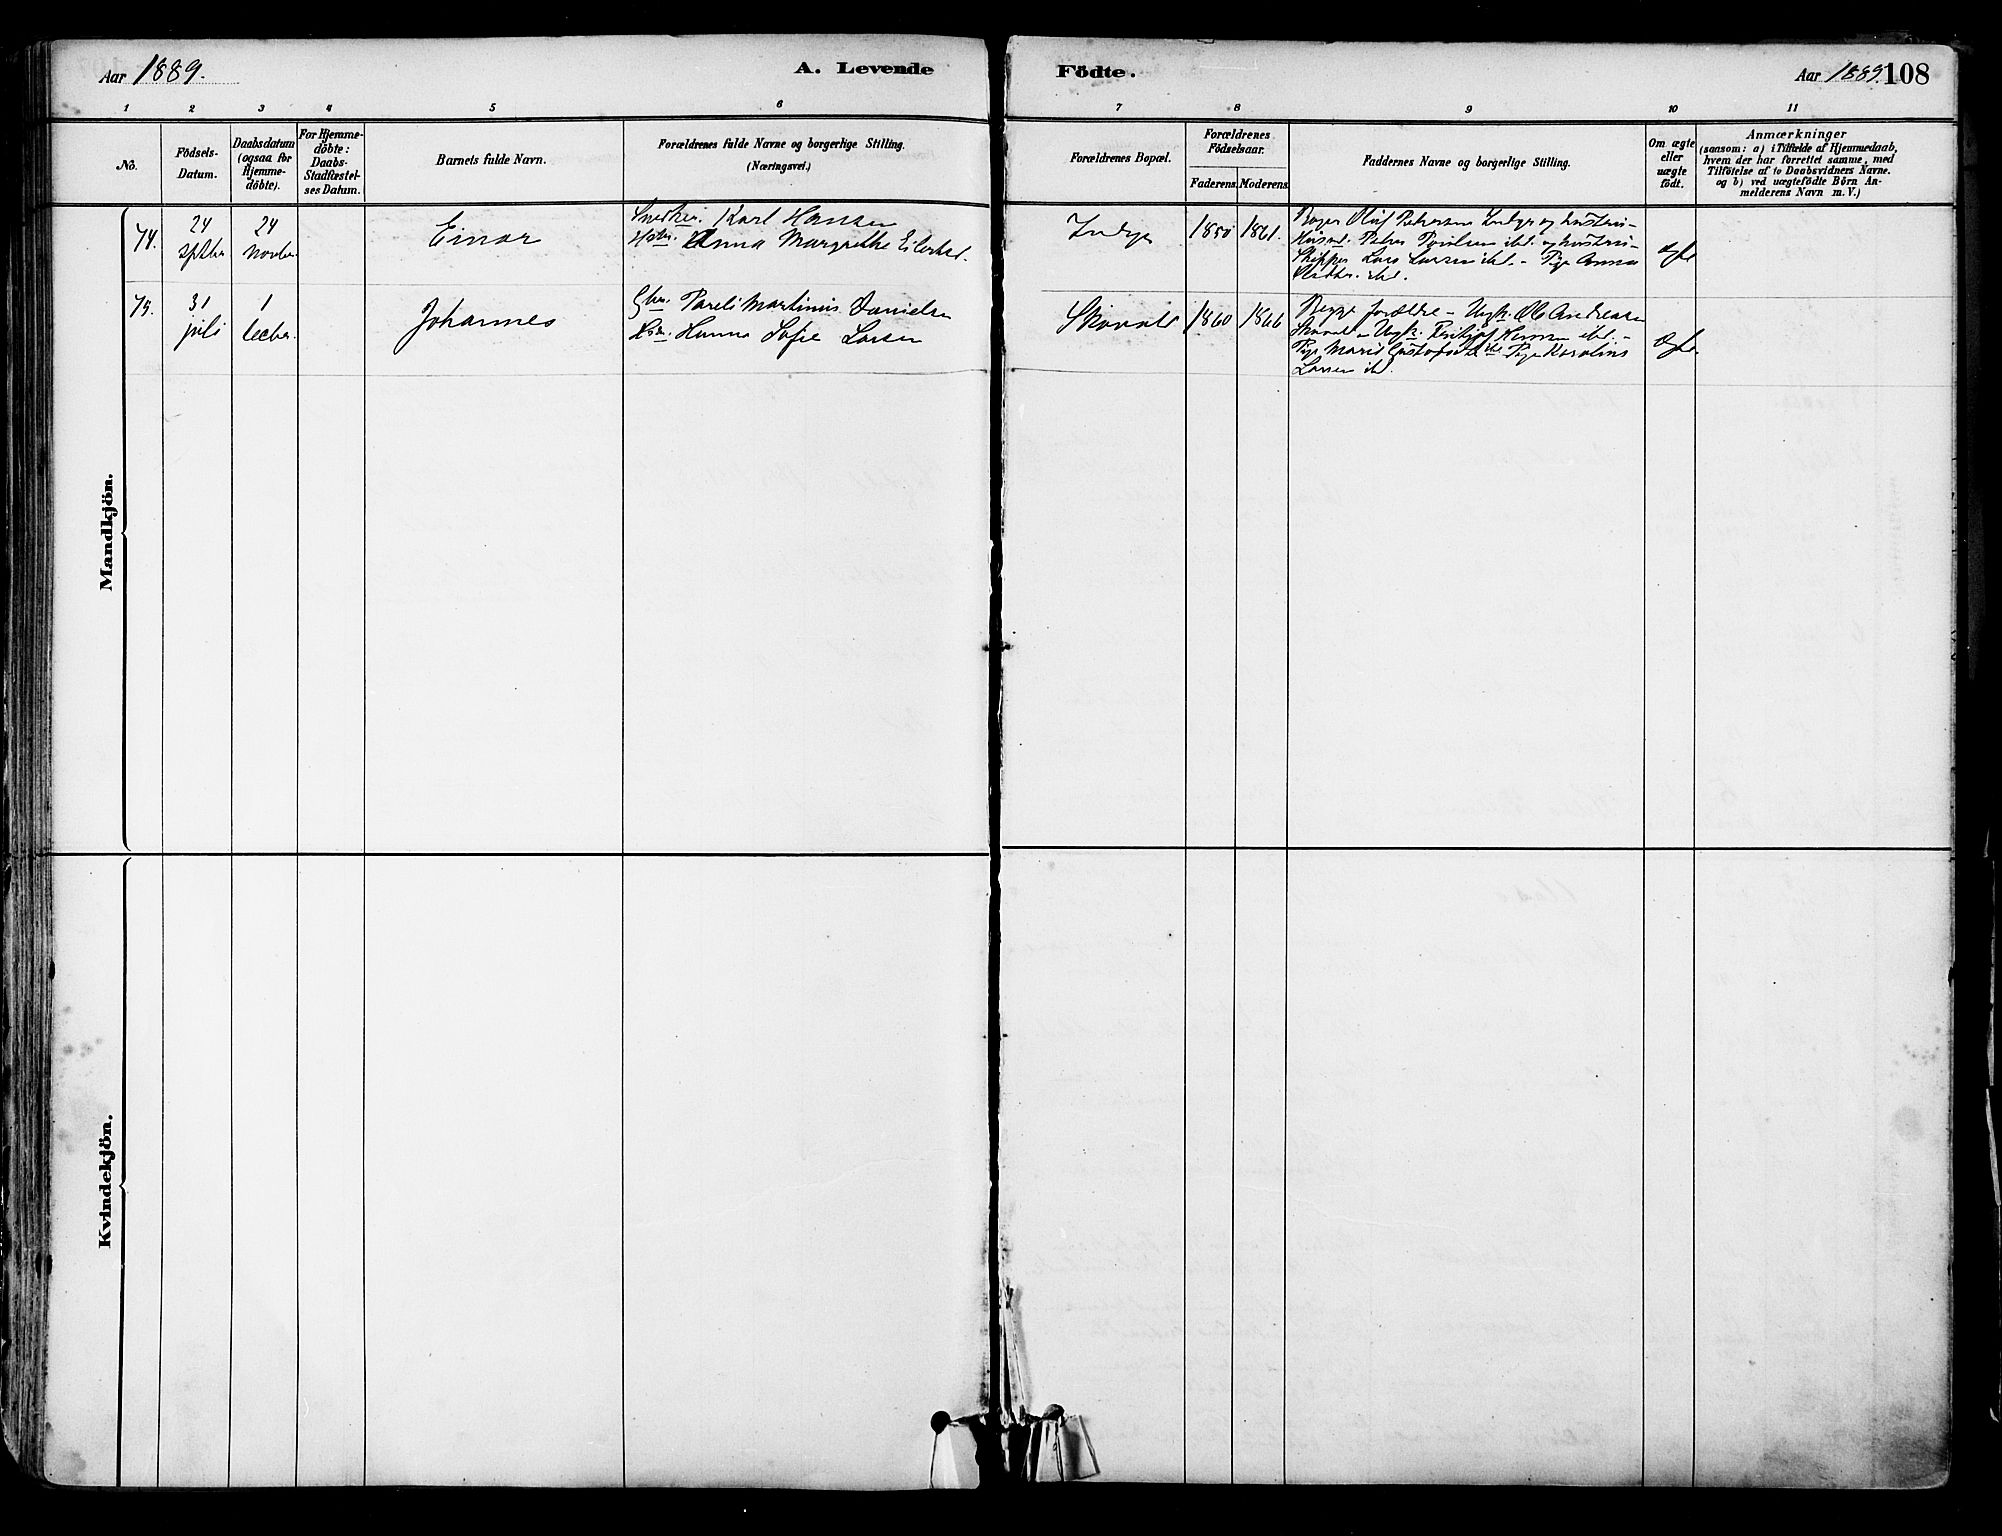 Aar 1889.
A. Levende
Födte.
Aar 1889. 108
1 2 3 4 5 6 7 8 9 10 11
No.
Födsels-
Datum.
Daabsdatum
(ogsaa for
Hjemme-
döbte).
For Hjemme-
döbte:
Daabs-
Stadfæstel-
ses Datum.
Barnets fulde Navn.
Forældrenes fulde Navne og borgerlige Stilling.
(Næringsvei.)
Forældrenes Bopæl.
Forældrenes
Födselsaar.
Faderens. Moderens.
Faddernes Navne og borgerlige Stilling.
Om ægte
eller
uægte
födt.
Anmærkninger
(saasom: a) i Tilfælde af Hjemmedaab,
hvem der har forrettet samme, med
Tilföielse af to Daabsvidners Navne.
og b) ved uægtefödte Börn An-
melderens Navn m. V.)
Mandkjön.
74.
24
sptber
24
novber
Einar
Snedker. Karl Hansen
Hstr. Anna Margrethe Eilertsd.
1850 1861.
Olaf Petersen
Husmd. Petter ibd. og hustru –
Skipper Lars Larsen ibd. – Pige Anna
ibd.
ægte
75.
31
juli
1
decber.
Johannes
Gbr. Pareli Martinus Danielsen
Hstr. Hanna Sofie Larsen
1860 1866
Begge forældre – Ungk. Ole Andreasen
– Ungk. ibd. –
Pige Marie ibd. Pige Karoline
Larsen ibd.
ægte.
Kvindekjön.